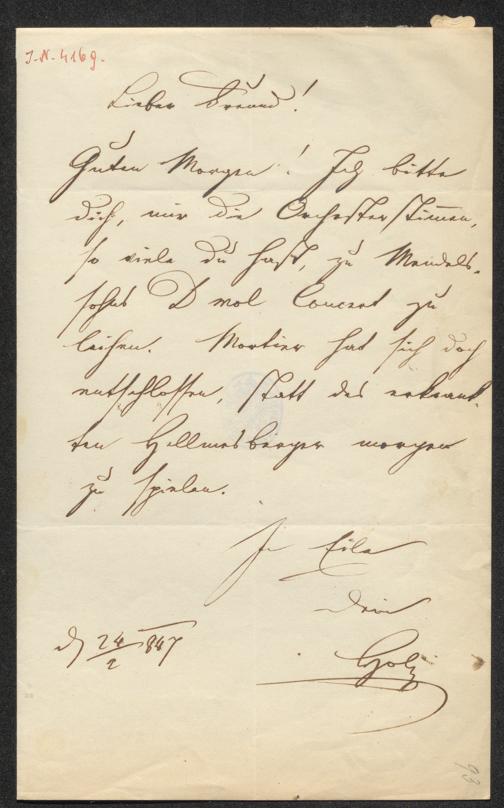 I. N. 4169.
Lieber Freund!
Guten Morgen! Ich bitte
dich, mir die Orchesterstimmen,
so viele du hast, zu Mendels-
sohns D mol Concert zu
leihen. Mortier hat sich doch
entschlossen, statt des erkrank-
ten Hellmesberger morgen
zu spielen.
In Eile
Dein
Holz
d 24/2 847
93